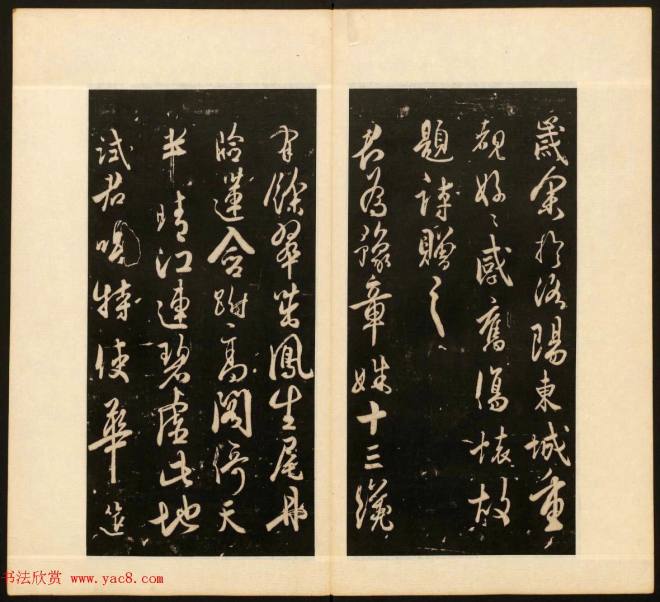 歲余於洛陽東城重
覩好〻感舊傷懷故
題詩贈之
君為豫章姝十三纔
有餘翠茁鳳生尾丹
臉蓮含跗高閣倚天
半晴江連碧虛此地
試君唱特使華筵
书法欣赏 www.yac8.com